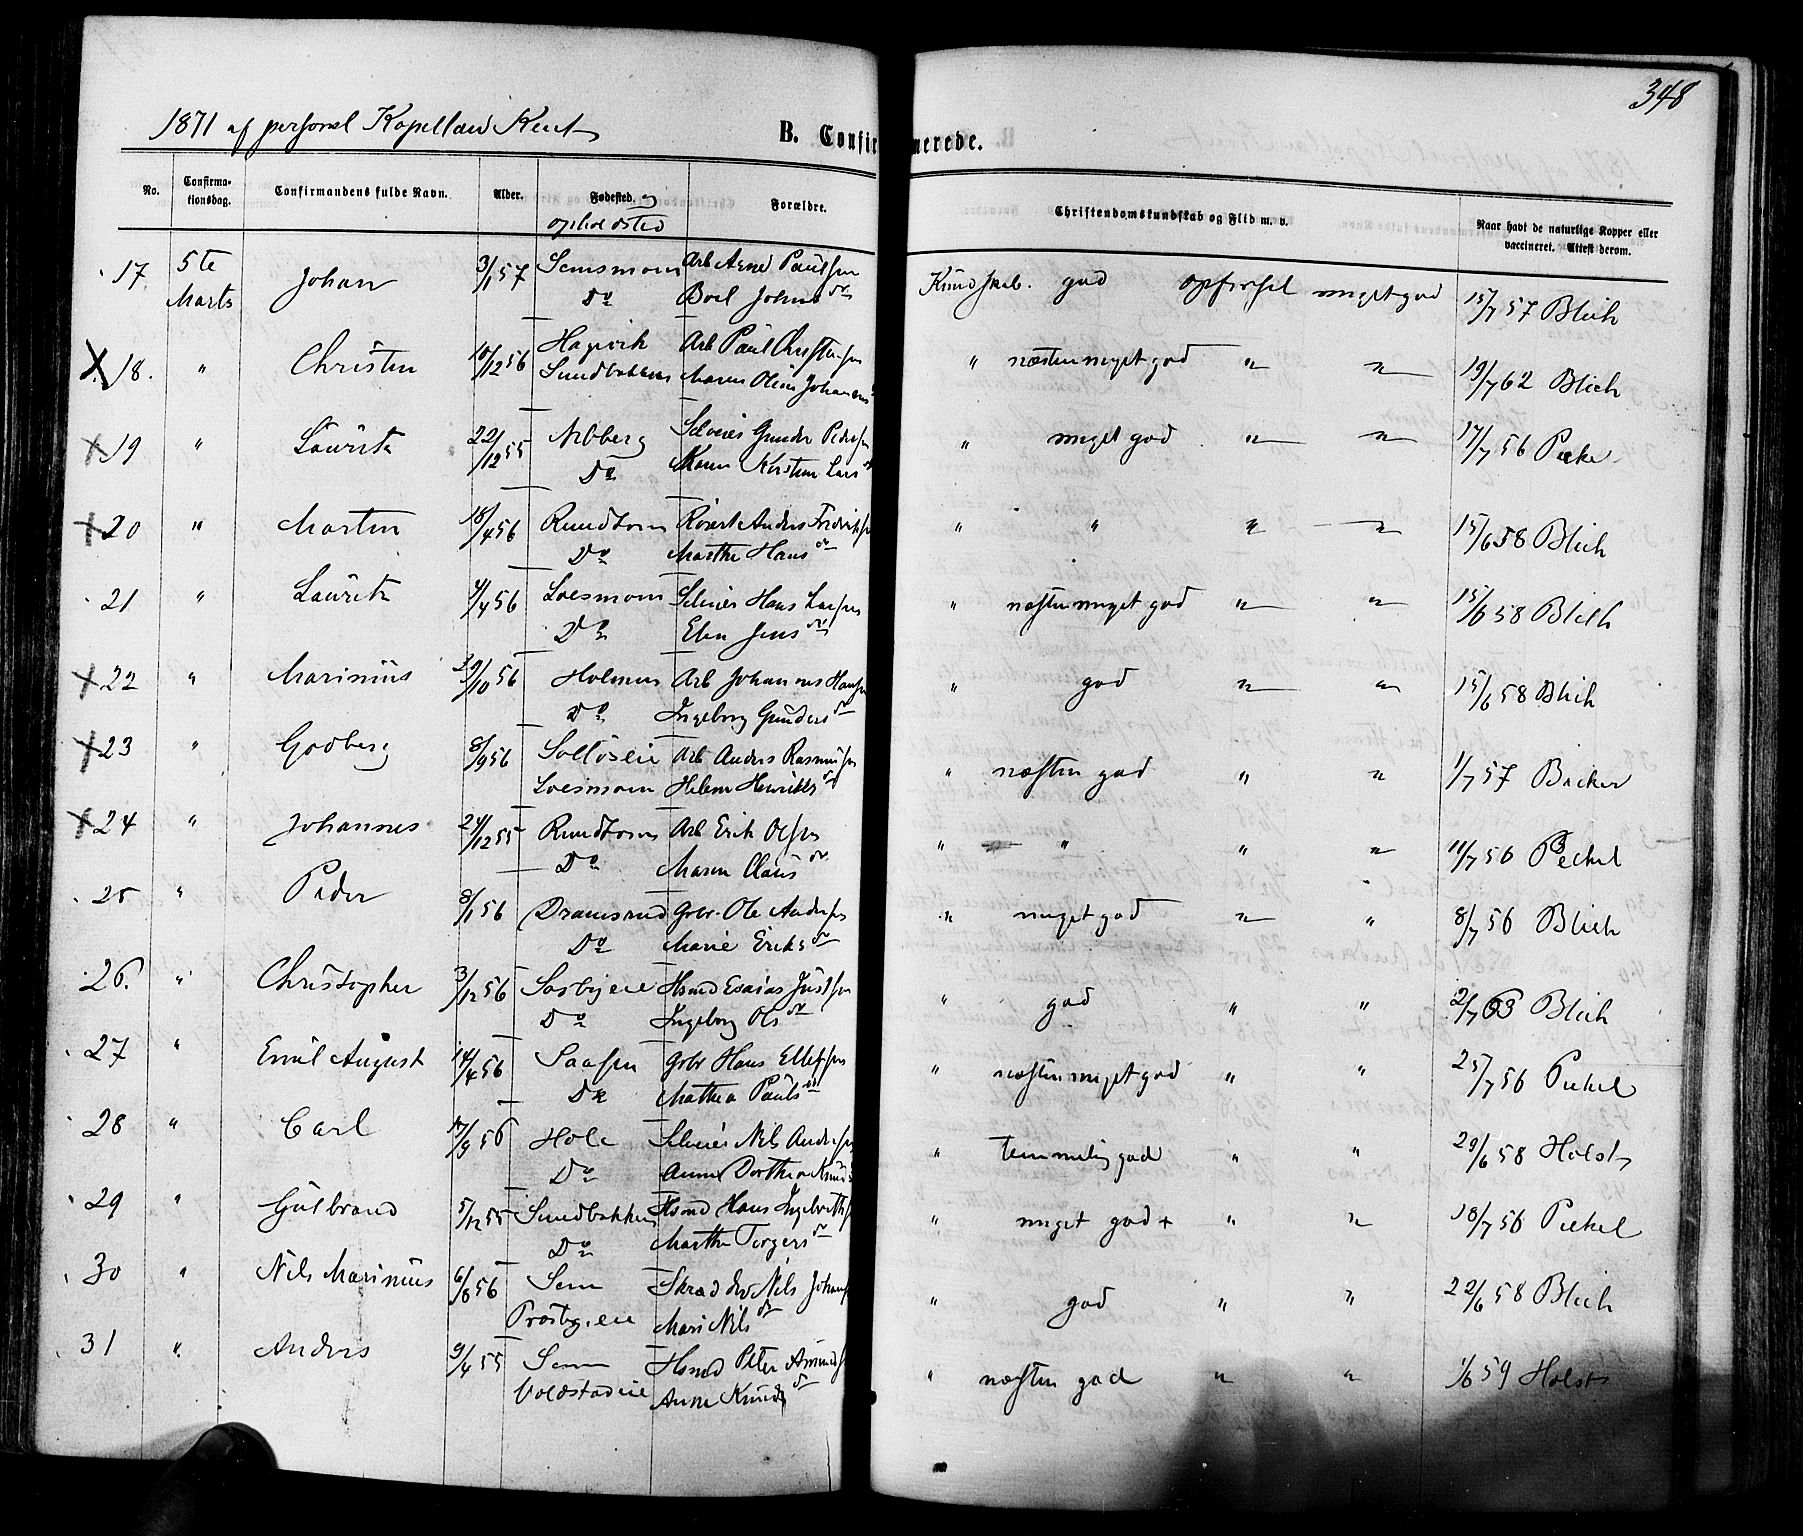 348
1871 af personel Kapellan Kent
B. Confirmerede.
No. Confirmationsdag. Confirmandens fulde Navn. Alder. Fødested. og opholdsted Forældre. Christendomskundskab og Flid m. v. Naar havt de naturlige Kopper eller vaccineret. Attest derom.
17. 5te Marts Johan 3/1 57 Semsmoen Arb Arne Paulsen Kundskab. god opførsel meget god 15/7 57 Blich
Do Boel Johns dr
18. " Christen 10/12 56 Arb Paul Christensen " næsten meget god " " 19/7 62 Blich
Sundbakken Maren Oline
19 " Lauritz 22/12 55 Selveier Gunder Pedersen " meget god " " 17/7 56
Do Karen Kirstine Lars dr
20 " Martin 18/4 56 Rundtom Anders " " " " 15/6 58 Blich
Do Marthe Hans dr
21 " Lauritz 4/4 56 Loesmoen Selveier Hans Larsen " næsten meget god " " 15/6 58 Blich
Do Elen Jens dr
22 " Marinius 29/10 56 Holmen Arb Johannes Hansen " god " " 15/6 58 Blich
Do Ingeborg Gunders dr
23 " Godberg 8/9 56 Arb Anders Rasmusen " næsten god " " 1/7 57 Backer
Loesmoen Helene Henriks dr
24 " Johannes 24/12 55 Rundtom Arb Erik Olsen " " " " 11/7 56 Peckel
Do Maren Claus dr
25 " Peder 8/1 56 Gbr. Ole Andersen " meget god " " 8/7 56 Blich
Do Marie Eriks dr
26. " Christopher 3/12 56 Hsmd Esaias Justsen " god " " 2/7 63 Blich
Do Ingeborg Ols dr
27 " Emil August 14/4 56 Gbr Hans Ellefsen " næsten meget god " " 25/7 56 Peckel
Do Mathea Pauls dr
28 " Carl 17/9 56 Hole Selveier Nils Andersen " temmelig god " " 29/6 58 Holst
Do Anne Dorthea Knuds
29 " Gulbrand 5/12 55 Sundbakken Hsmd Hans " meget god + " " 18/7 56 Peckel
Do Marthe Torgers dr
30 " Nils Marinius 6/8 56 Sem Skrædder Nils " god " " 22/6 58 Blich
Mari Nils dr
31 " Anders 9/4 55 Sem Hsmd Peter " næsten god " " 1/6 59 Holst
Voldstadeie Anne Knuds dr